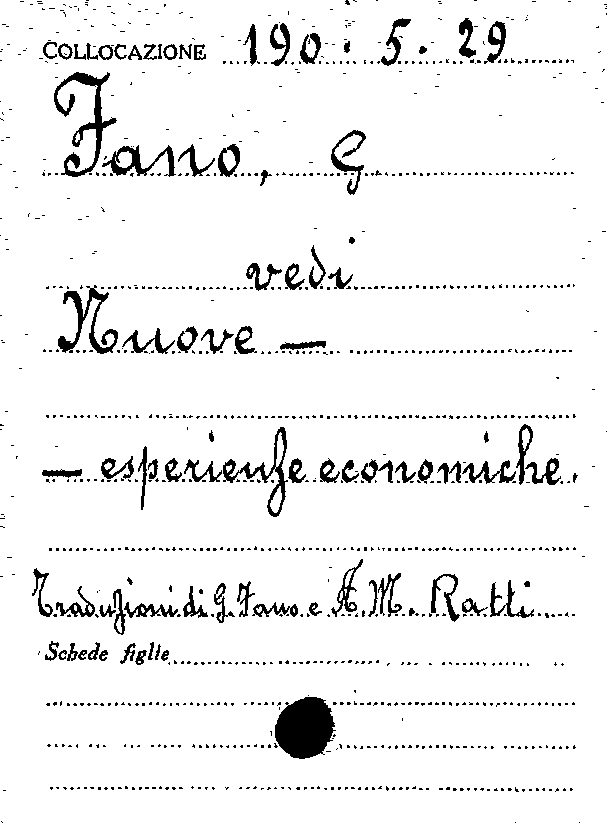 COLLOCAZIONE 190. 5. 29
Fano, G.
vedi
Nuove —
— esperienze economiche.
Traduzioni di G. Fano e A. M. Ratti.
Schede figlie